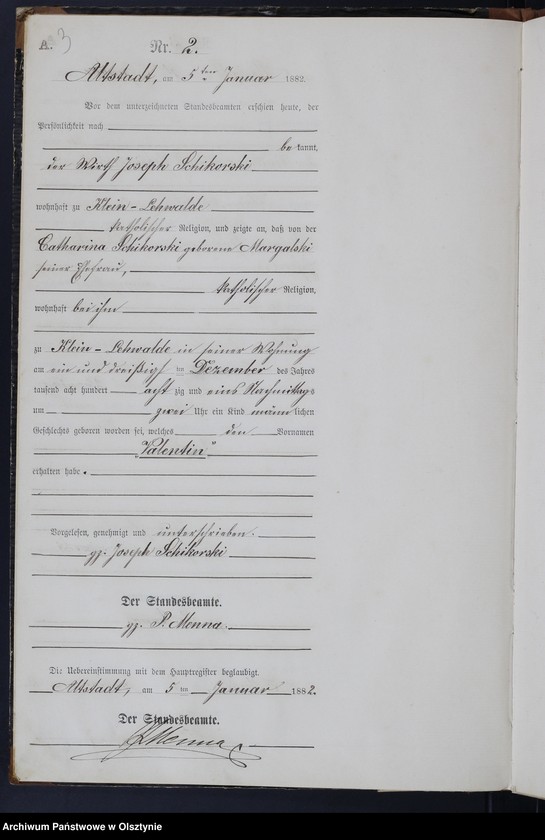 A. 3
Nr. 2.
Altstadt, am 5ten Januar 1882.
Vor dem unterzeichneten Standesbeamten erschien heute, der
Persönlichkeit nach
be kannt,
der Wirth Joseph Schikorski
wohnhaft zu Klein-Lehwalde
katholischer Religion, und zeigte an, daß von der
Catharina Schikorski geborene Margalski
seiner Ehefrau,
katholischer Religion,
wohnhaft bei ihm
zu Klein-Lehwalde in seiner Wohnung
am ein und dreißigsten Dezember des Jahres
tausend acht hundert acht zig und eins Nachmittags
um zwei Uhr ein Kind männlichen
Geschlechts geboren worden sei, welches den Vornamen
"Valentin"
erhalten habe.
Vorgelesen, genehmigt und unterschrieben.
gz. Joseph Schikorski
Der Standesbeamte.
gz. P. Menna.
Die Uebereinstimmung mit dem Hauptregister beglaubigt.
Altstadt, am 5ten Januar 1882.
Der Standesbeamte.
Menna
Archiwum Państwowe w Olsztynie